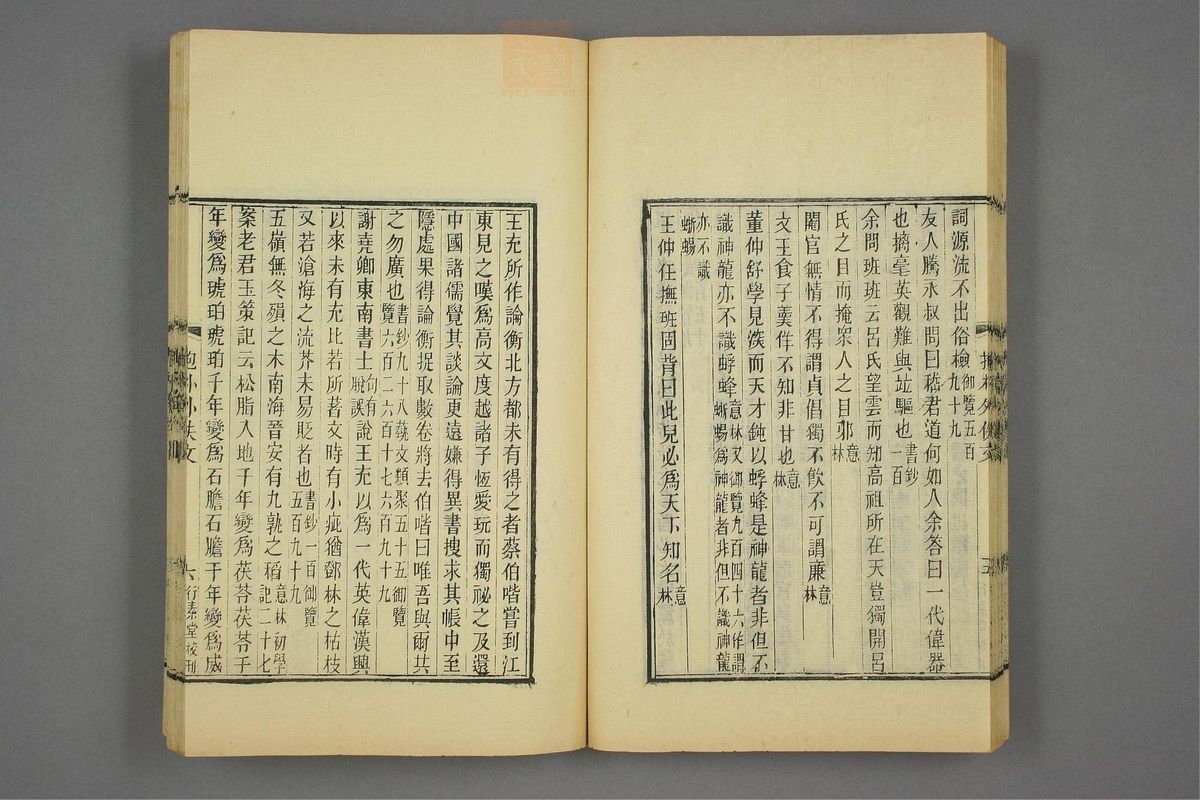 詞源流不出俗檢御覽五百九十九
友人騰永叔問曰嵇君道何如人余答曰一代偉器
也摛毫英觀難與竝驅也書鈔一百
余問班班云呂氏望雲而知高祖所在天豈獨開呂
氏之目而掩衆人之目邪意林
閹官無情不得謂貞倡獨不飲不可謂廉意林
文王食子羹佯不知非甘也意林
董仲舒學見深而天才鈍以蜉蜂是神龍者非但不
識神龍亦不識蜉蜂意林又御覽九百四十六作謂蜥蜴爲神龍者非但不識神龍
亦不識蜥蜴
王仲任撫班固背曰此兒必爲天下知名意林
王充所作論衡北方都未有得之者蔡伯喈嘗到江
東見之嘆爲高文度越諸子恆愛玩而獨祕之及還
中國諸儒覺其談論更遠嫌得異書搜求其帳中至
隱處果得論衡捉取數卷將去伯喈曰唯吾與爾共
之勿廣也書鈔九十八藝文類聚五十五御覽六百二六百十七六百九十九
謝堯卿東南書士句有脫誤說王充以爲一代英偉漢興
以來未有充比若所著文時有小疵猶鄧林之枯枝
又若滄海之流芥未易貶者也書鈔一百御覽五百九十九
五嶺無冬殞之木南海晉安有九孰之稻意林初學記二十七
案老君玉策記云松脂入地千年變爲茯苓茯苓千
年變爲琥珀琥珀千年變爲石膽石膽千年變爲威
抱朴外佚文
六
行素堂校刊